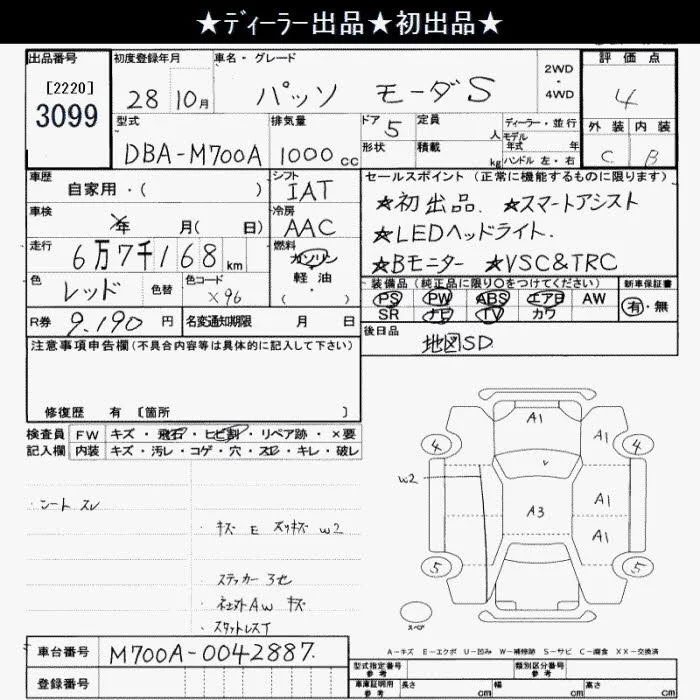 ★ディーラー出品★初出品★
出品番号 初度登録年月 車名・グレード 評価点
[2220] 28 10月 パッソ モーダS 2WD・4WD 4
3099
型式 排気量 ドア 5 定員 人 ディーラー・並行 外装 内装
DBA-M700A 1000cc 形状 積載 kg モデル年式 年 C B
ハンドル 左・右
車歴 シフト セールスポイント(正常に機能するものに限ります)
自家用・( ) IAT ★初出品、★スマートアシスト
車検 年 月( 日) 冷房 AAC ★LEDヘッドライト.
走行 6万7千168km 燃料 ガソリン ★Bモニター ★VSC&TRC
色 レッド 色替 色コード X96 軽・油 ・( ) 装備品(純正品に限り○をつけてください) 新車保証書
PS PW ABS エアB AW 有・無
SR ナビ TV カワ
R券 9,190円 名変通知期限 月 日 後日品
地図SD
注意事項申告欄(不具合内容等は具体的に記入して下さい)
修復歴 有 〔箇所 〕
検査員 FW キズ・飛石・ヒビ割・リペア跡・×要
記入欄 内装 キズ・汚レ・コゲ・穴・スレ・キレ・破レ
A1
4 A1 4
W2
・シート スレ
A3 A1
A1
・キズ E スリキズ W2
5 5
・ステッカー 3セ
・社外AW キズ
・スタットレスT
スペア
A-キズ E-エクボ U-凹み W-補修跡 S-サビ C-腐食 XX-交換済
車台番号 M700A-0042887.
登録番号
型式指定番号 参考 類別区分番号 参考
車庫証明用 参考 長さ cm 幅 cm 高さ cm